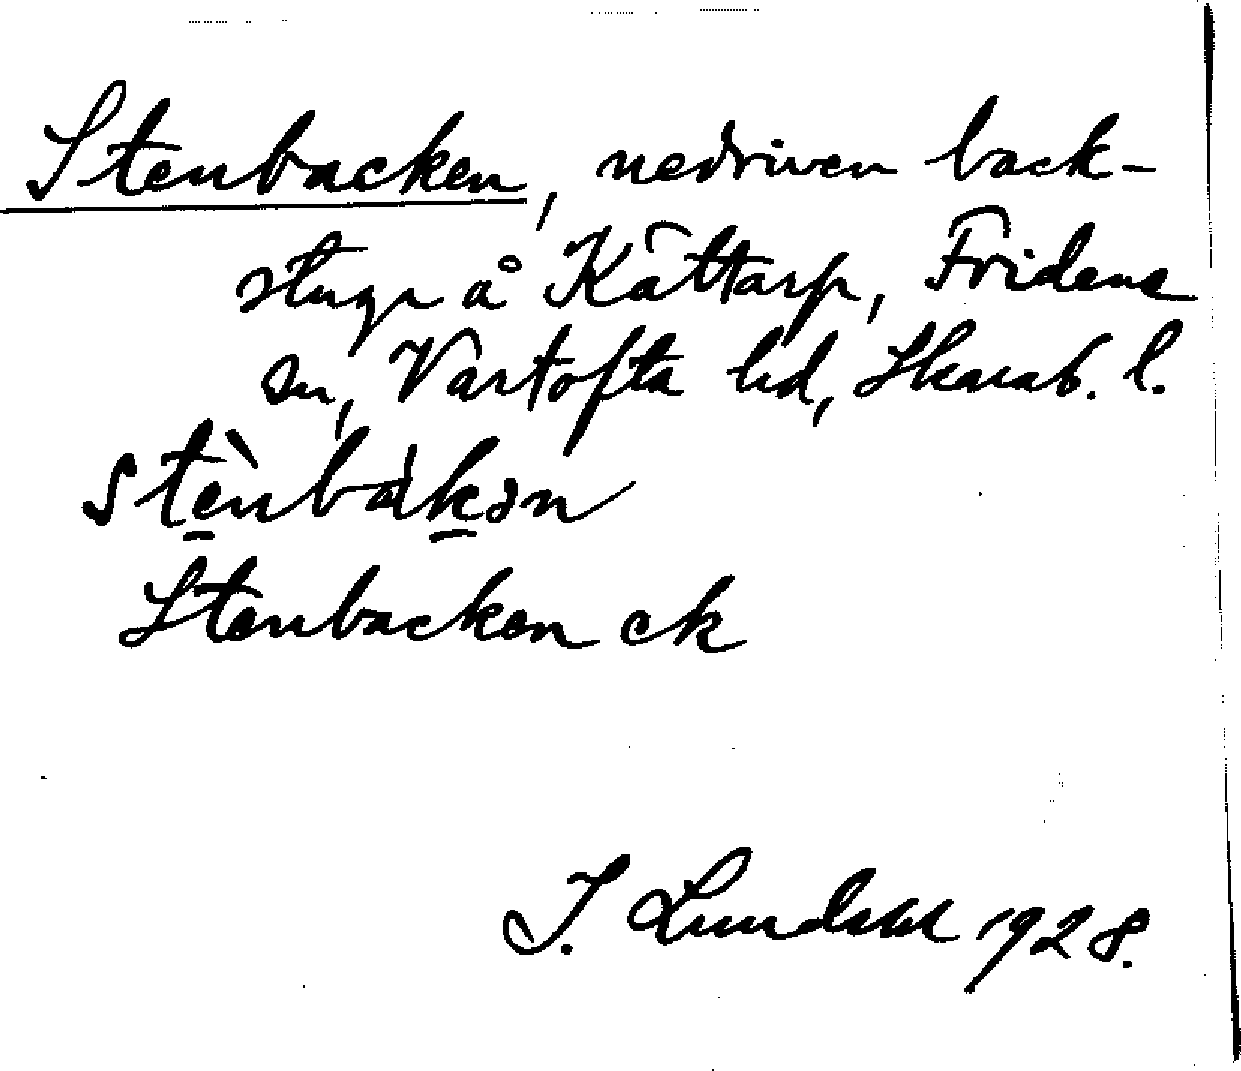 Stenbacken, nedriven back-
stuga å Kättarp, Fridene
sn, Vartofta hd, Skarab. l.
stènbákən
Stenbacken ck
I. Lundahl 1928.